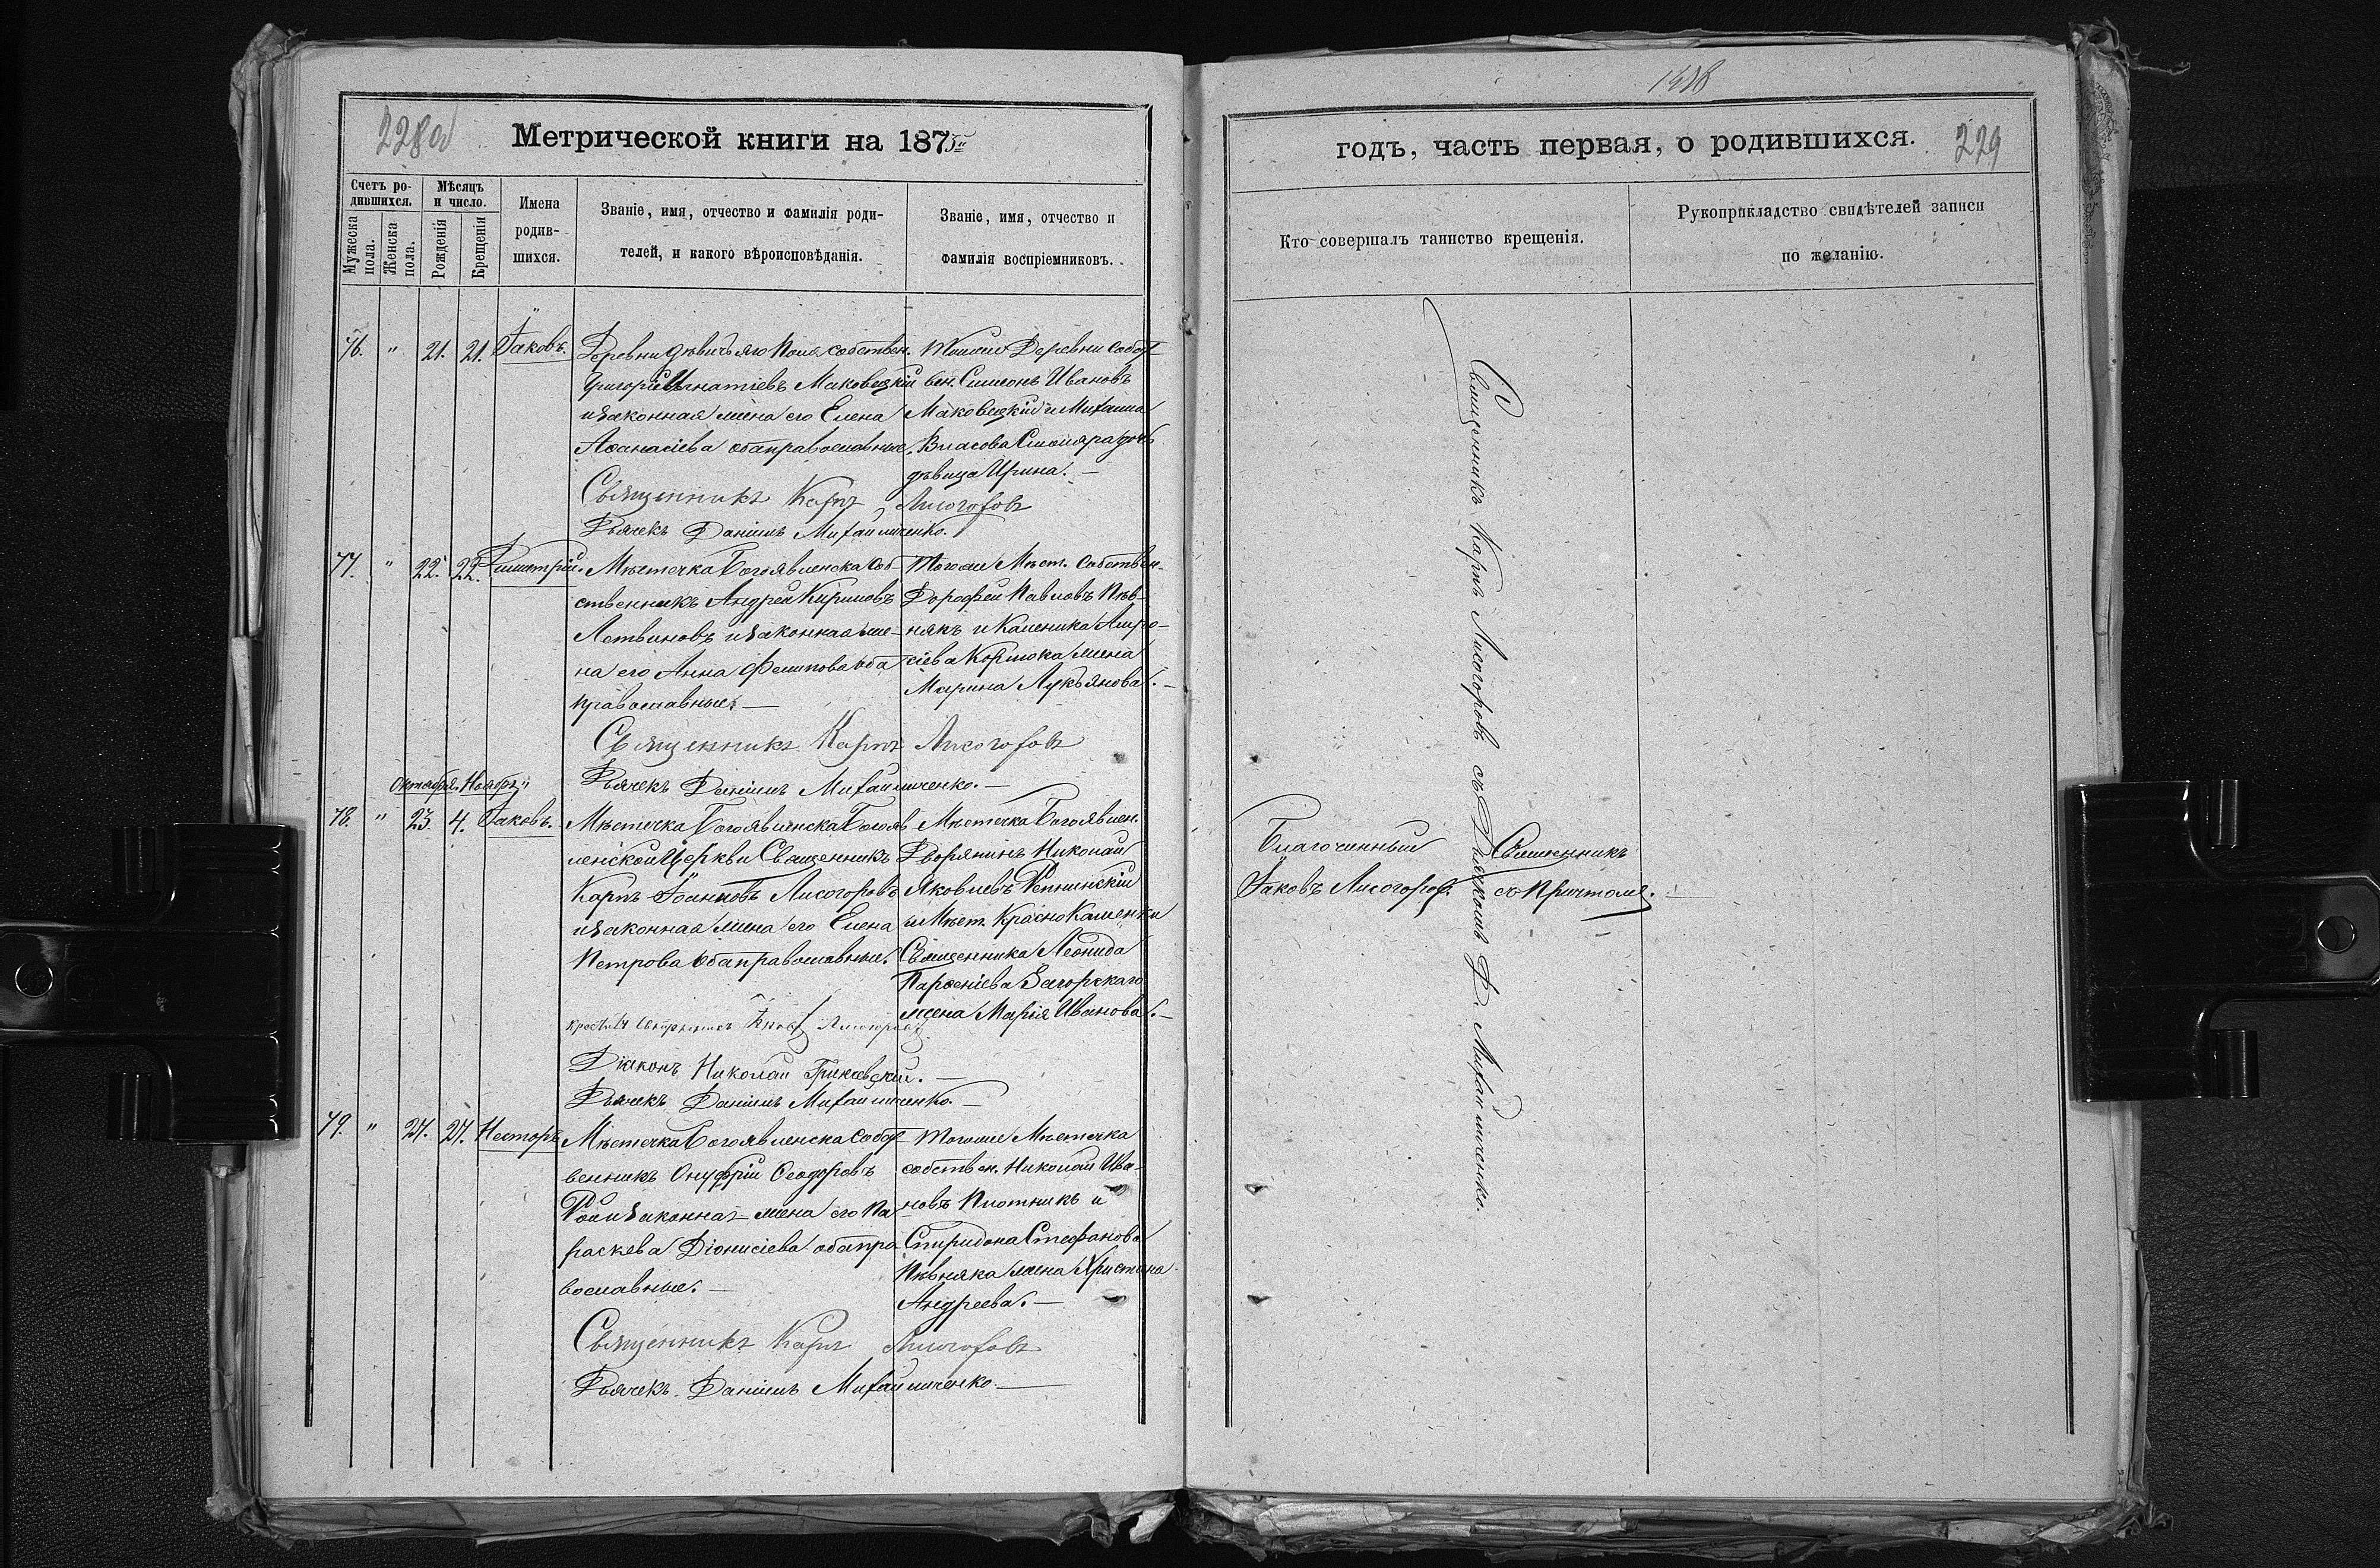 228об
Метрической книги на 1875й
Счетъ ро-
дившихся.
Мужеска
пола.
Женска
пола.
Мѣсяцъ
и число.
Рожденія
Крещенія
Имена
родив-
шихся.
Званіе, имя, отчество и фамилія роди-
телей, и какого вѣроисповѣданія.
Званіе, имя, отчество и
фамилія воспріемниковъ.
76. " 21. 21. Іаковъ.
Деревни собствен.
Григорій Игнатіевъ Маковецкій
и законная жена его Елена
Аѳанасіева оба православные.
Тойже Деревни собст-
вен. Симеонъ Ивановъ
Маковецкій и Михаила
Власова Столяра дочь
дѣвица Ирина.—
Священникъ Карпъ Лисогоровъ
Дьячекъ Даніилъ Михайличенко.
77. " 22. 22. Димитрій.
Мѣстечка Богоявленска соб-
ственникъ Андрей Кириловъ
Летвиновъ и законная же-
на его Анна Филипова оба
православные.—
Тогоже Мѣст. собствен-
Дорофей Павловъ Пѣв-
някъ и Каленика Амвро-
сіева жена
Марина Лукьянова.—
Священникъ Карпъ Лисогоровъ
Дьячекъ Даніилъ Михайличенко.—
Октября. Ноябр.
78. " 23. 4. Іаковъ.
Мѣстечка Богоявленска Богояв-
ленской Церкви Священникъ
Карпъ Іоанновъ Лисогоровъ
и законная жена его Елена
Петрова оба православные.
Мѣстечка Богоявлен.
Дворянинъ Николай
Яковлевъ Репнинскій
и Мѣст. Красно Каменки
Священника Леонида
Парѳеніева Загорскаго
жена Марія Иванова.—
Лисогоровъ
Діаконъ Николай Гриневскій.—
Дьячекъ Даніилъ Михайличенко.—
79. " 27. 27. Несторъ
Мѣстечка Богоявленска собст-
венникъ Онуфрій Ѳеодоровъ
Рой и законная жена его Па-
раскева Діонисіева оба пра-
вославные.—
Тогоже Мѣстечка
собствен. Николай Ива-
новъ Плотникъ и
Спиридона Стефанова
Пѣвняка жена Христина
Андреева.—
Священникъ Карпъ Лисогоровъ
Дьячекъ Даніилъ Михайличенко.—
годъ, часть первая, о родившихся.
229
Кто совершалъ таинство крещенія.
Рукоприкладство свидѣтелей записи
по желанію.
Священникъ Карпъ Лисогоровъ съ Дьячкомъ Д. Михайличенко.
Благочинный Священникъ
Іаковъ Лисогоров. съ Причтомъ.—